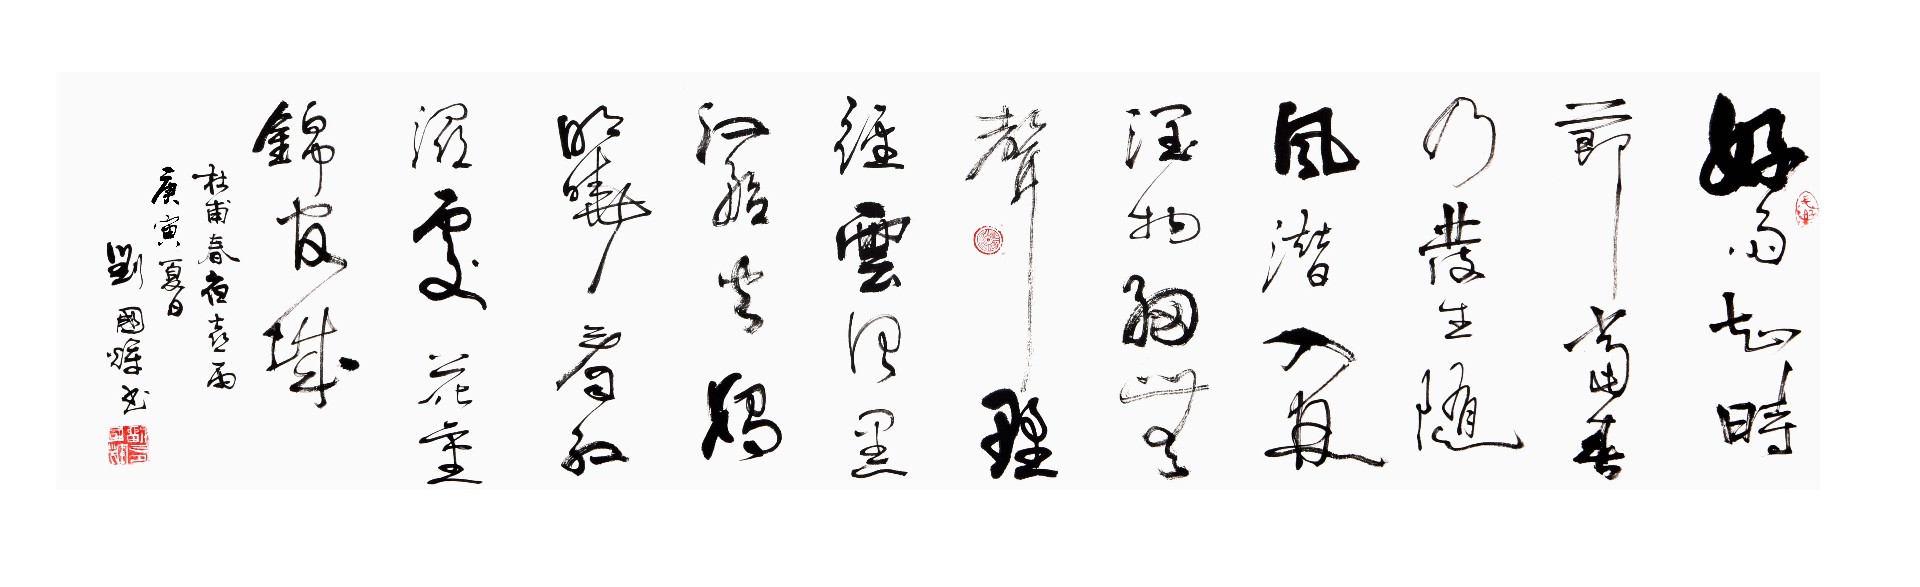 好雨知時
節當春
乃發生隨
風潛入夜
潤物細無
聲野
徑雲俱黑
江船火獨
明曉看紅
濕處花重
錦官城
杜甫春夜喜雨
庚寅夏日
劉國書